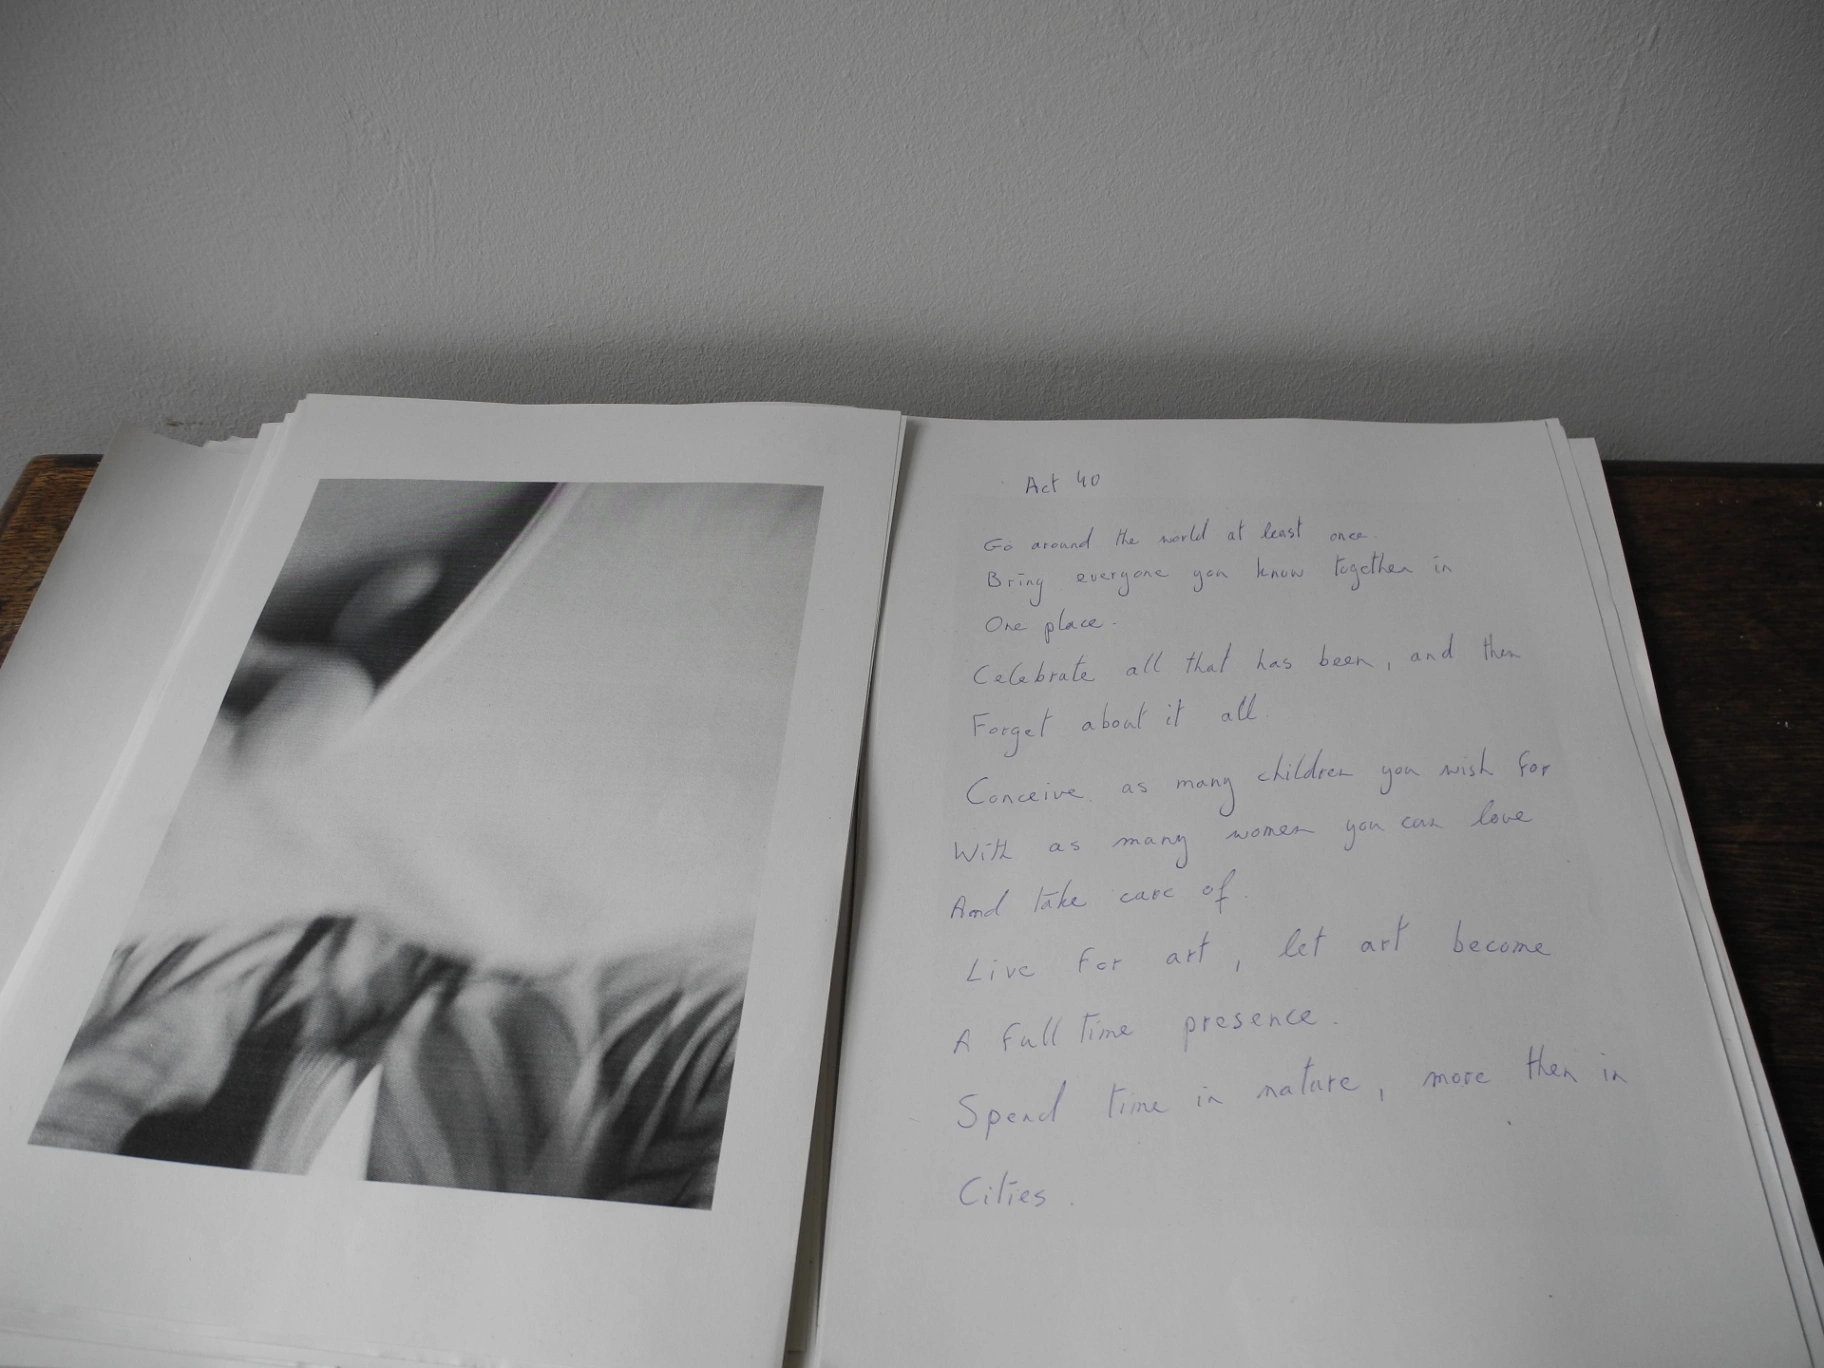 Act 40
Go around the world at least once.
Bring everyone you know together in
One place.
Celebrate all that has been, and then
Forget about it all.
Conceive as many children you wish for
With as many women you can love
And take care of.
Live for art, let art become
A full time presence.
Spend time in nature, more then in
Cities.